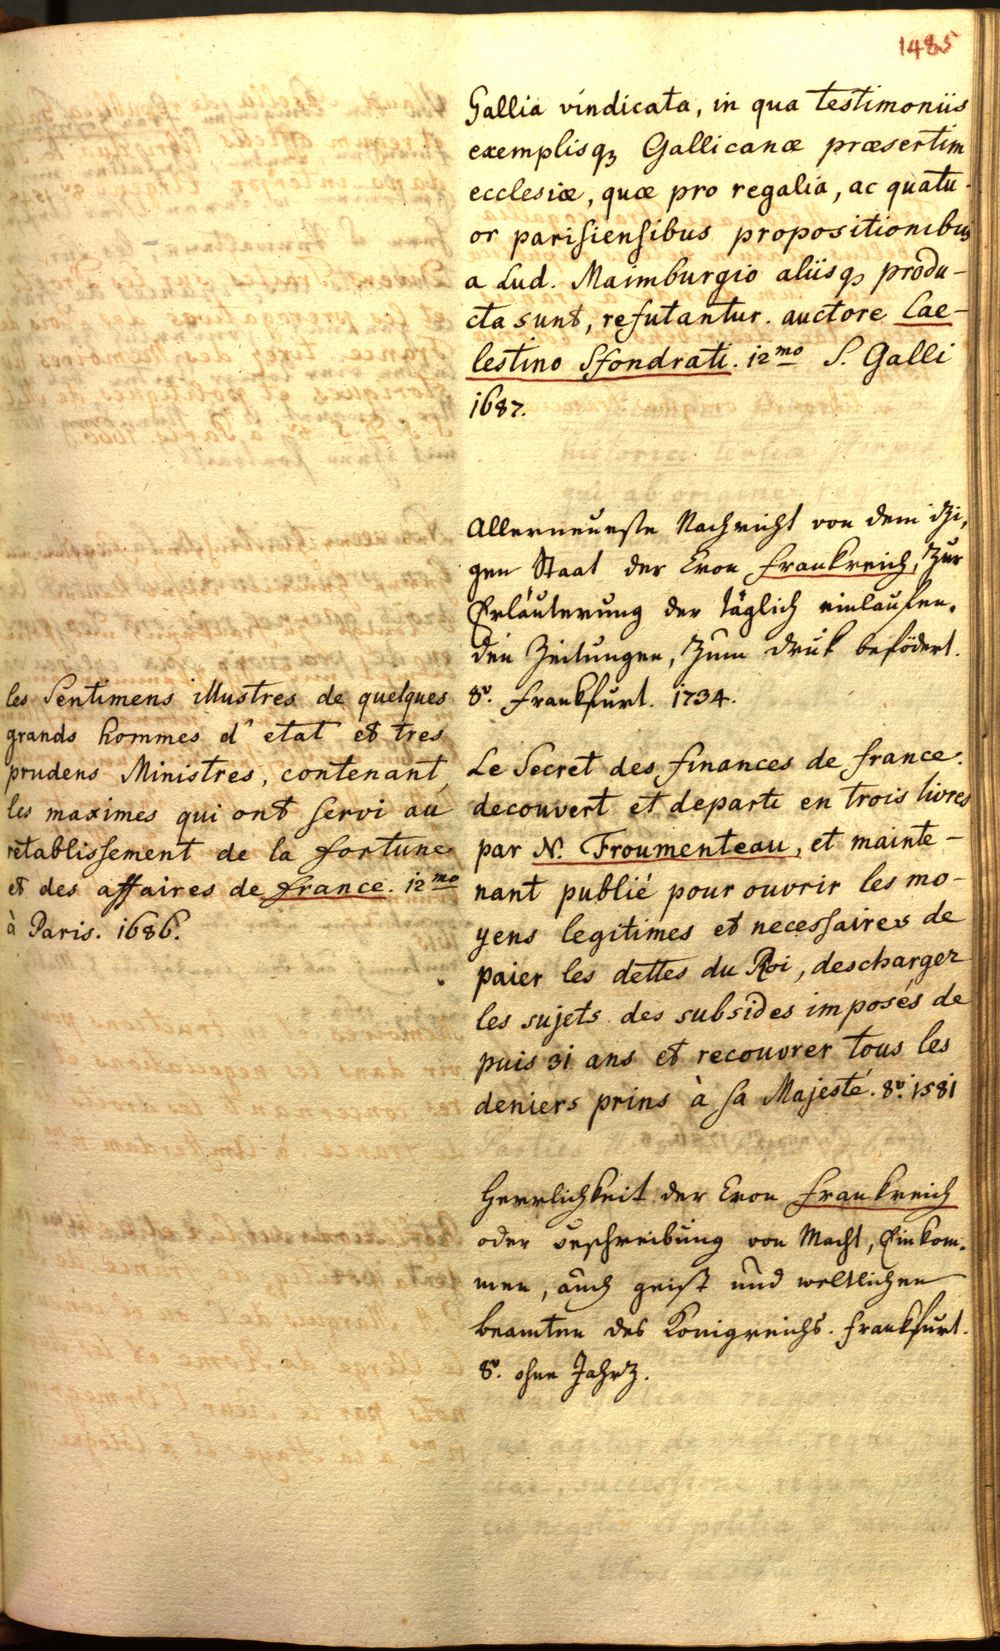 1485
Gallia vindicata, in qua testimoniis
exemplisqꝫ Gallicanæ præsertim
ecclesiæ, quæ pro regalia, ac quatu-
or parisiensibus propositionibus
a Lud. Maimburgio aliisqꝫ produ-
cta sunt, refutantur. auctore Cae-
lestino Sfondrati. 12mo S. Galli
1687.
Allerneueste Nachricht von dem itzi,
gen Staat der Cron Frankreich, zur
Erläuterung der täglich einlaufen,
den Zeitungen, zum druk befödert.
8º. Frankfurt. 1734.
Le Secret des finances de france.
decouvert et departi en trois livres
par N. Froumenteau, et mainte-
nant publié pour ouvrir les mo-
yens legitimes et necessaires de
paier les dettes du Roi, descharger
les sujets des subsides imposés de
puis 31 ans et recouvrer tous les
deniers prins à sa Majesté. 8º. 1581
Herrlichkeit der Cron Frankreich
oder beschreibung von Macht, Einkom-
men, auch geist und weltlichen
beamten des Konigreichs. Frankfurt.
8º. ohne Jahrz.
les Sentimens illustres de quelques
grands hommes d'etat et tres
prudens Ministres, contenant
les maximes qui ont servi au
retablissement de la fortune
et des affaires de france. 12mo
à Paris. 1686.